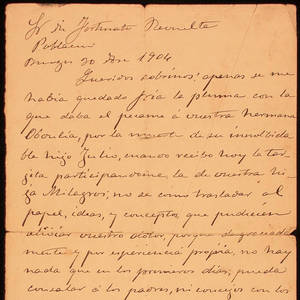 Sr Dn Fortunato Revuelta
Poblacion
Burgos 20 1904
Queridos sobrinos: apenas se me
habia quedado fria la pluma con la
que daba el pesame á vuestra hermana
Obdulia, por la muerte de su inolvida
ble hijo Julio, cuando recibo hoy la tar
jeta participandome la de vuestra hi
ja Milagros; no se como trasladar al
papel, ideas, y conceptos que pudieran
aliviar vuestro dolor, porque desgraciada
mente y por esperiencia propia, no hay
nada que en los primeros dias, pueda
consolar á los padres, ni consejos con los